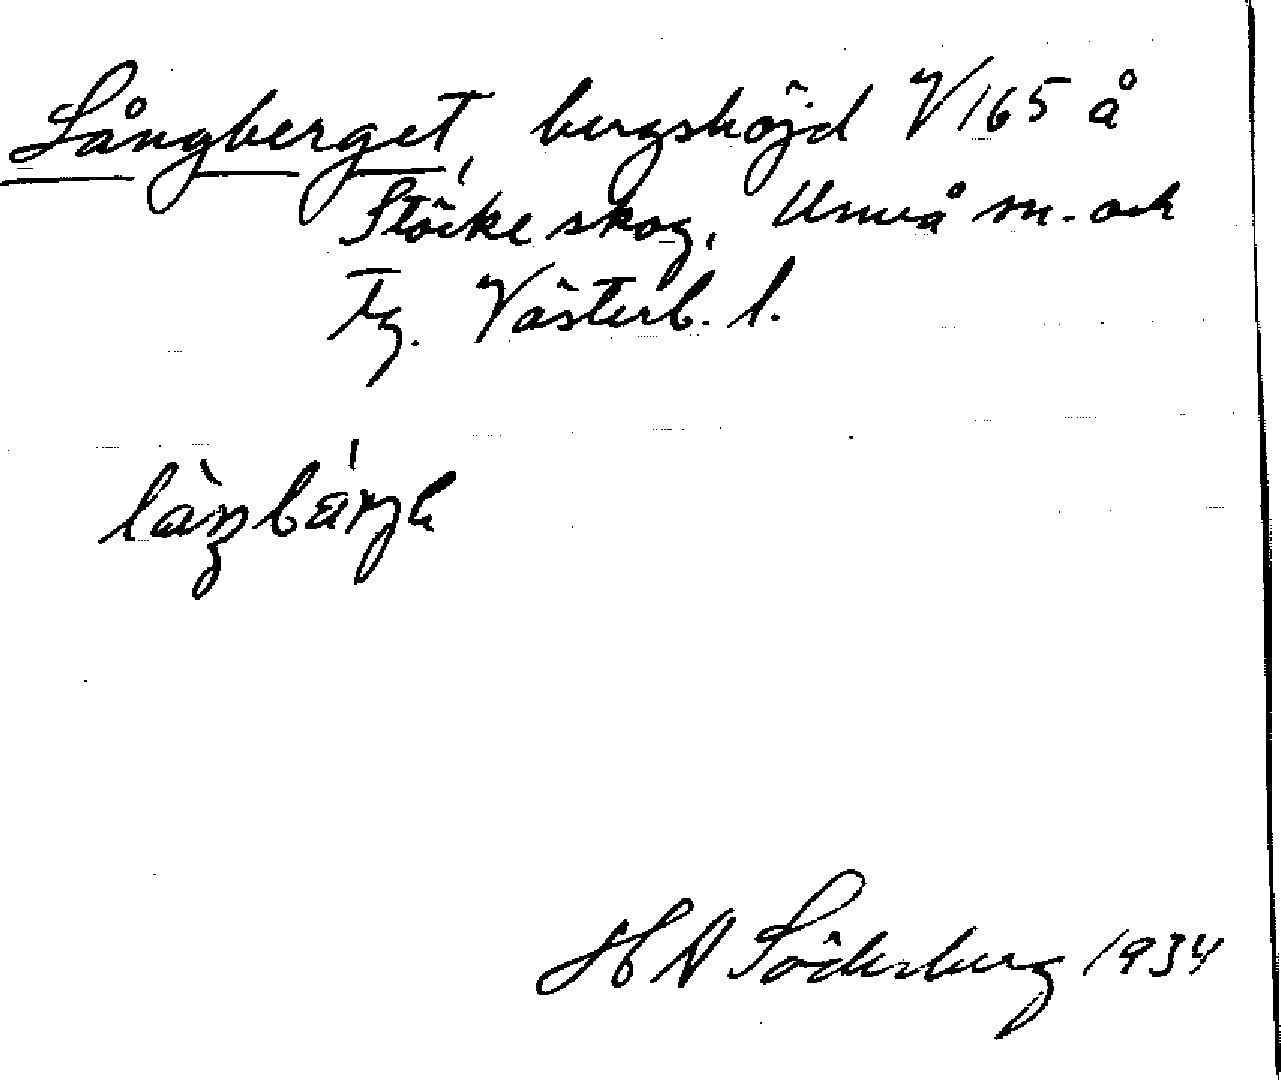 Långberget, bergshöjd V165 å
Stöcke skog, Umeå sn. och
Tg. Västerb. l.
H A Söderberg 1934